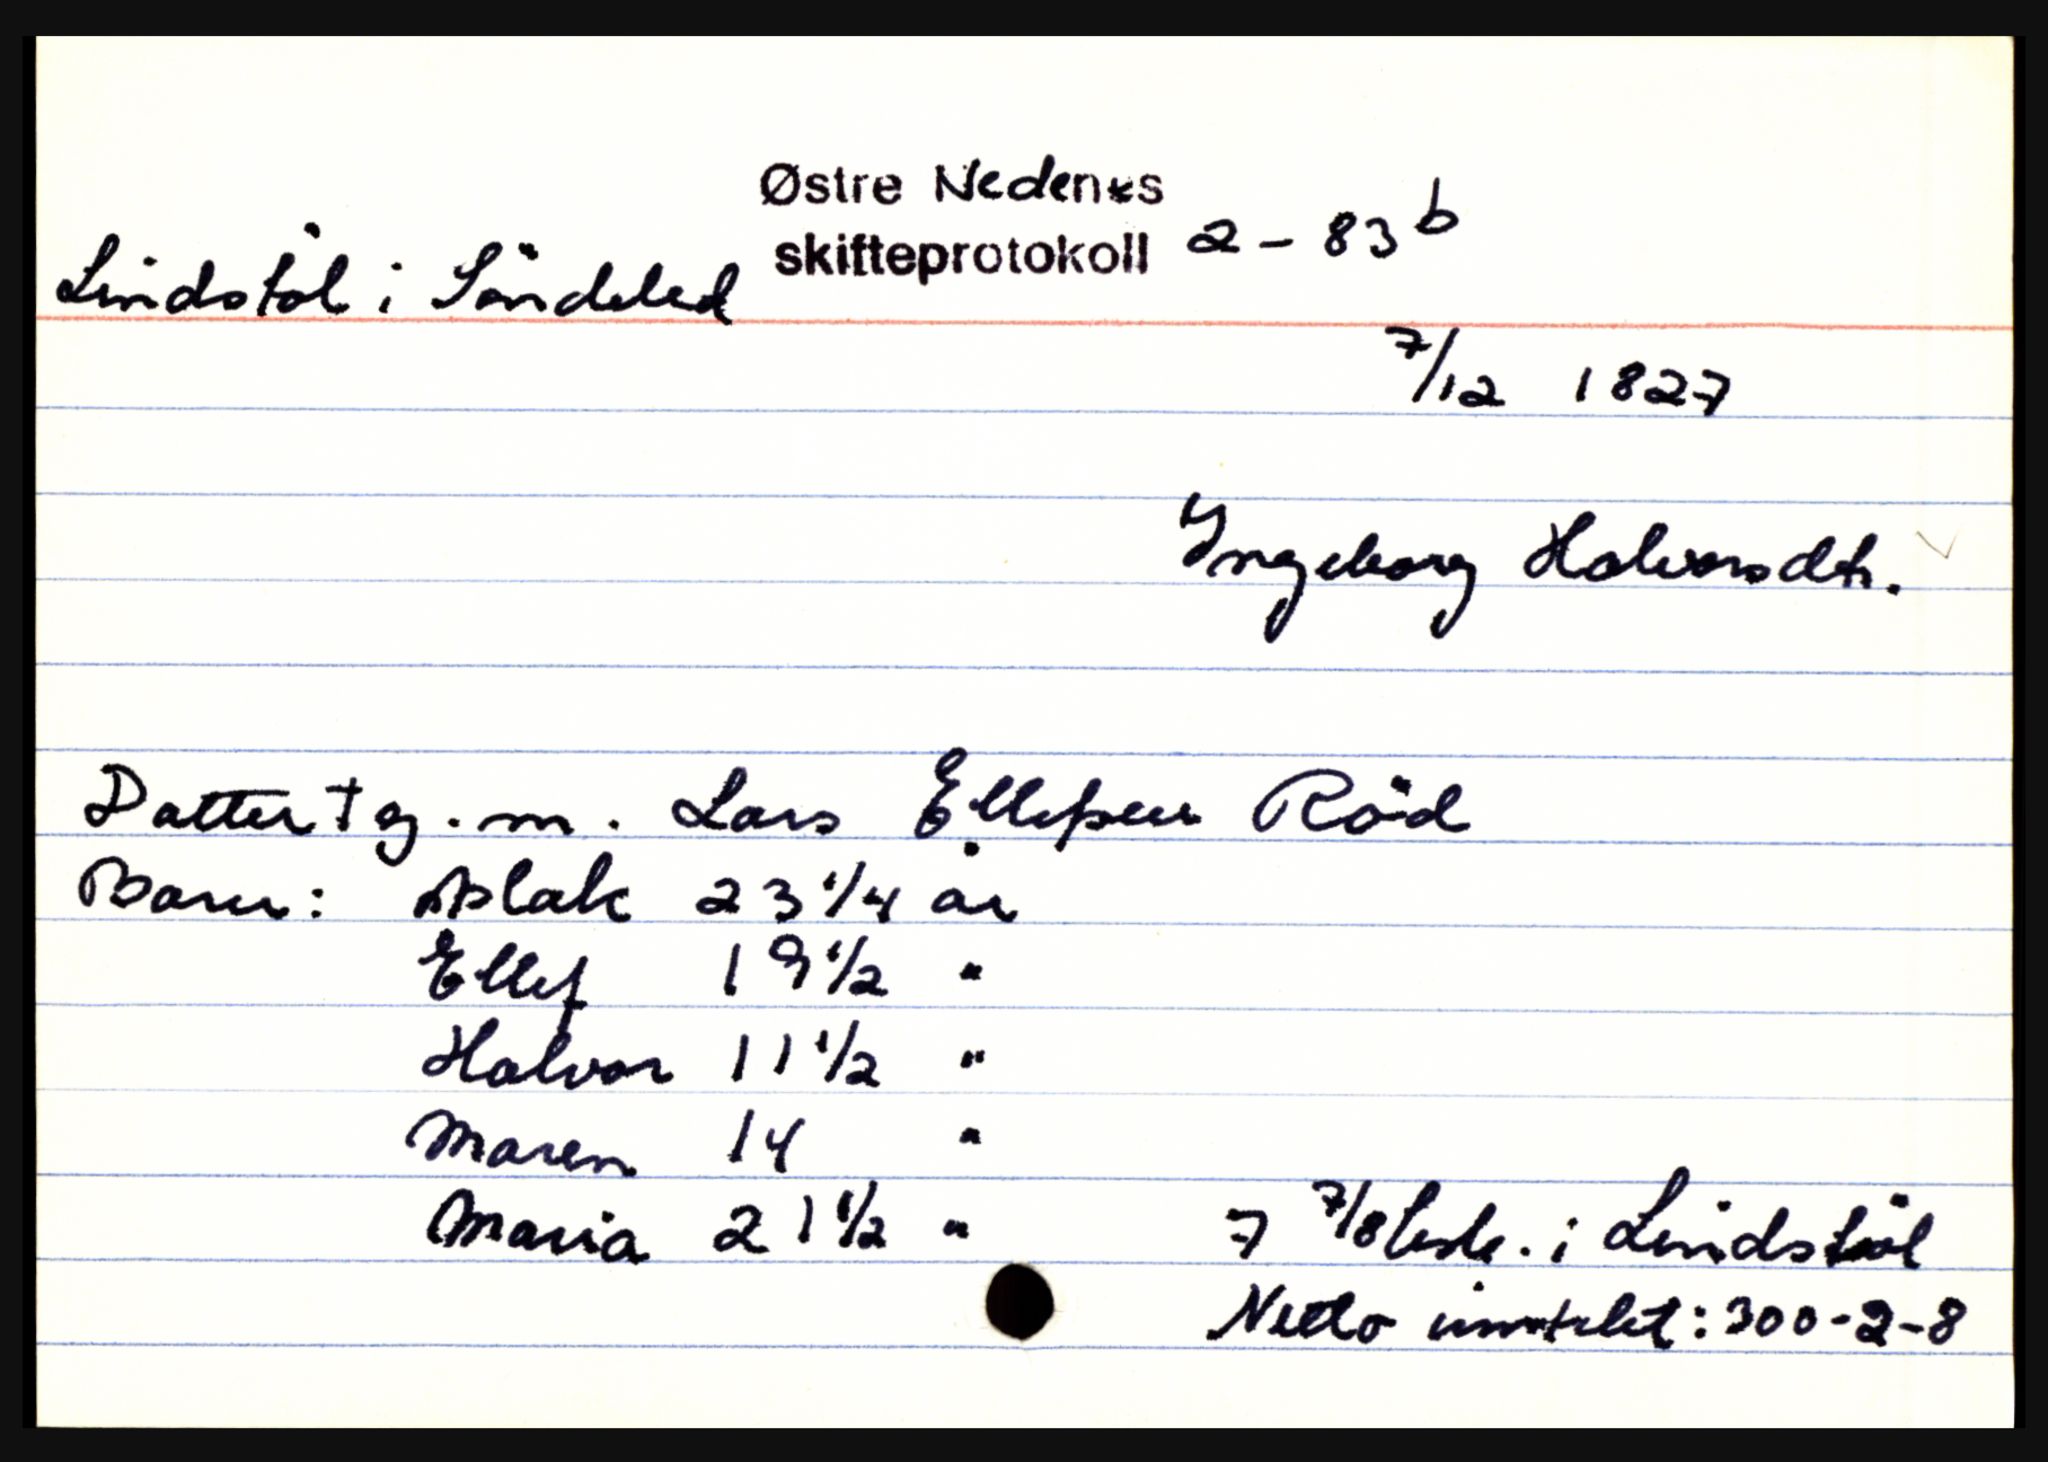 Østre Nedenes
skifteprotokoll 2 - 83 b
Lindstöl i Söndeled
7/12 1827
Ingeborg Halvorsdtr.
Datter † g. m. Lars Ellefsen Röd
Barn: Aslak 23 1/4 år
Ellef 19 1/2 "
Halvor 11 1/2 "
Maren 14 "
Maria 21 1/2 "
7 7/8 lisp. i Lindstöl
Netto inntekt: 300-2-8